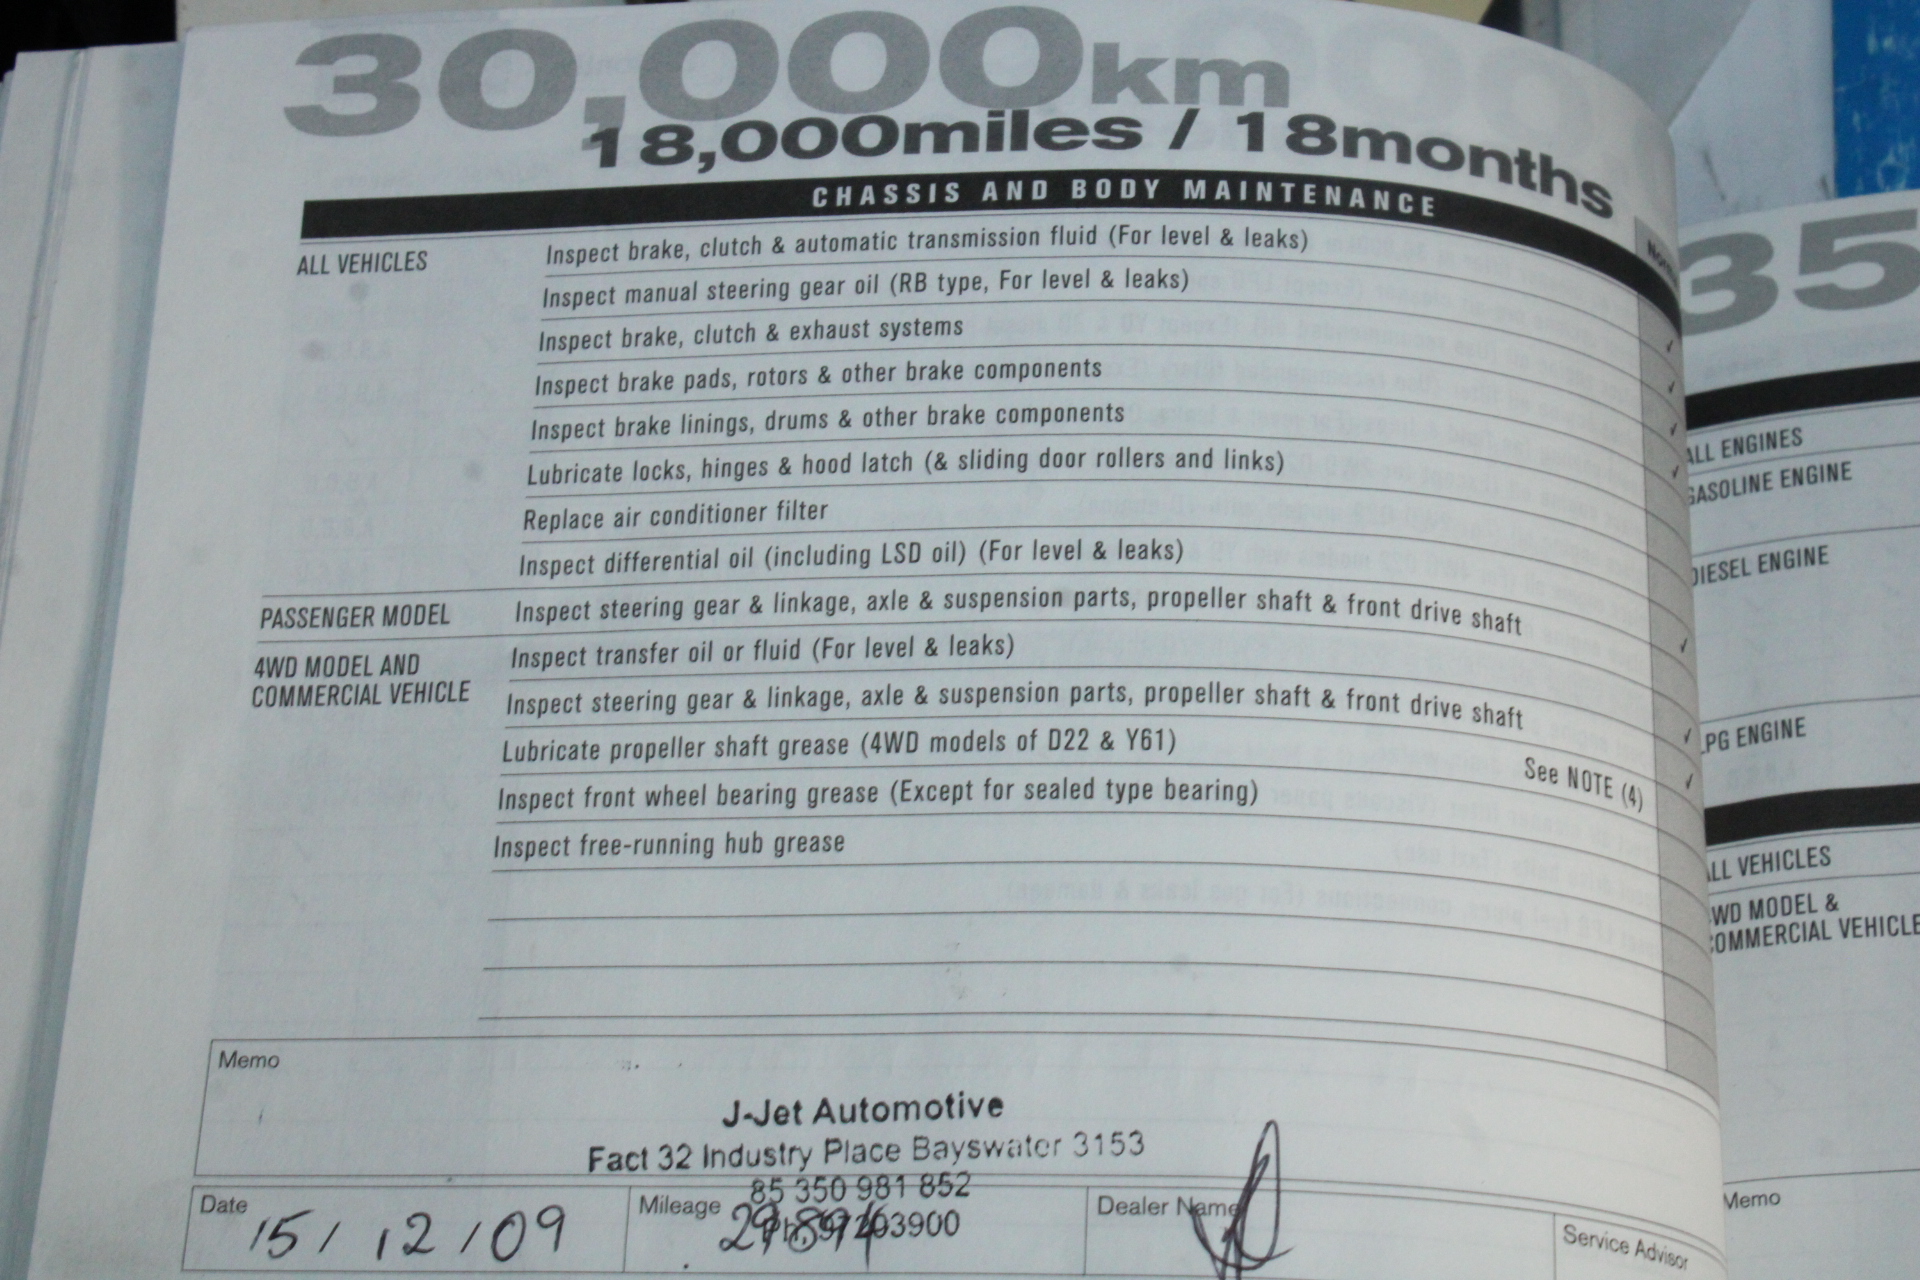 30,000km
18,000miles / 18months
CHASSIS AND BODY MAINTENANCE
ALL VEHICLES
Inspect brake, clutch & automatic transmission fluid (For level & leaks)
Inspect manual steering gear oil (RB type, For level & leaks)
Inspect brake, clutch & exhaust systems
Inspect brake pads, rotors & other brake components
Inspect brake linings, drums & other brake components
Lubricate locks, hinges & hood latch (& sliding door rollers and links)
Replace air conditioner filter
Inspect differential oil (including LSD oil) (For level & leaks)
PASSENGER MODEL
Inspect steering gear & linkage, axle & suspension parts, propeller shaft & front drive shaft
4WD MODEL AND
COMMERCIAL VEHICLE
Inspect transfer oil or fluid (For level & leaks)
Inspect steering gear & linkage, axle & suspension parts, propeller shaft & front drive shaft
Lubricate propeller shaft grease (4WD models of D22 & Y61)
See NOTE (4)
Inspect front wheel bearing grease (Except for sealed type bearing)
Inspect free-running hub grease
Memo
J-Jet Automotive
Fact 32 Industry Place Bayswater 3153
85 350 981 852
Date 15/12/09
Mileage
Dealer Name
Service Advisor
35
ALL ENGINES
GASOLINE ENGINE
DIESEL ENGINE
LPG ENGINE
ALL VEHICLES
4WD MODEL &
COMMERCIAL VEHICLE
Memo